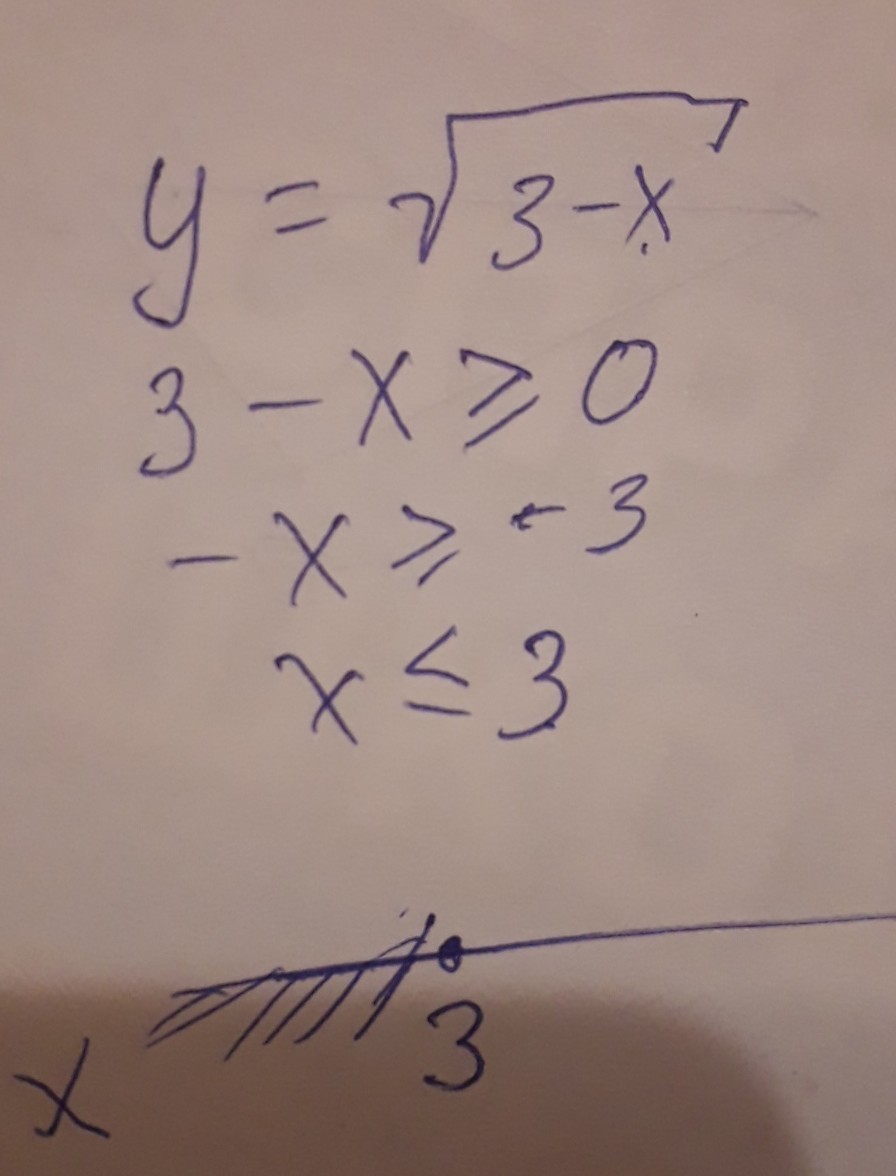 y = √3-x
3 - x ⩾ 0
- x ⩾ -3
x ≤ 3
3
x